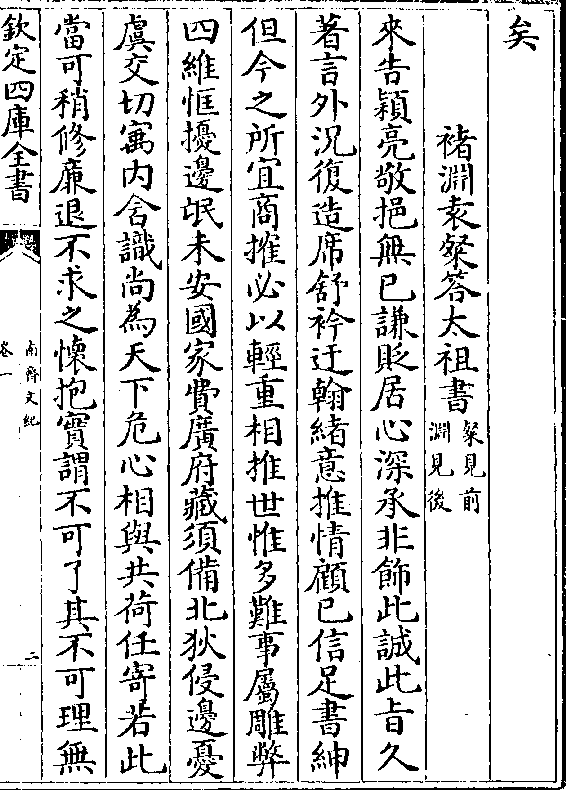 矣
褚淵袁粲答太祖書粲見前
淵見後
來告穎亮敬挹無已謙貶居心深承非飾此誠此旨久
著言外況復造席舒衿迂翰緒意推情顧已信足書紳
但今之所宜商搉必以輕重相推世惟多難事屬雕弊
四維恇擾邊氓未安國家費廣府藏須備北狄侵邊憂
虞交切寓内含識尚為天下危心相與共荷任寄若此
當可稍修廉退不求之懷抱實謂不可了其不可理無
欽定四庫全書
南齊文紀
卷一
二